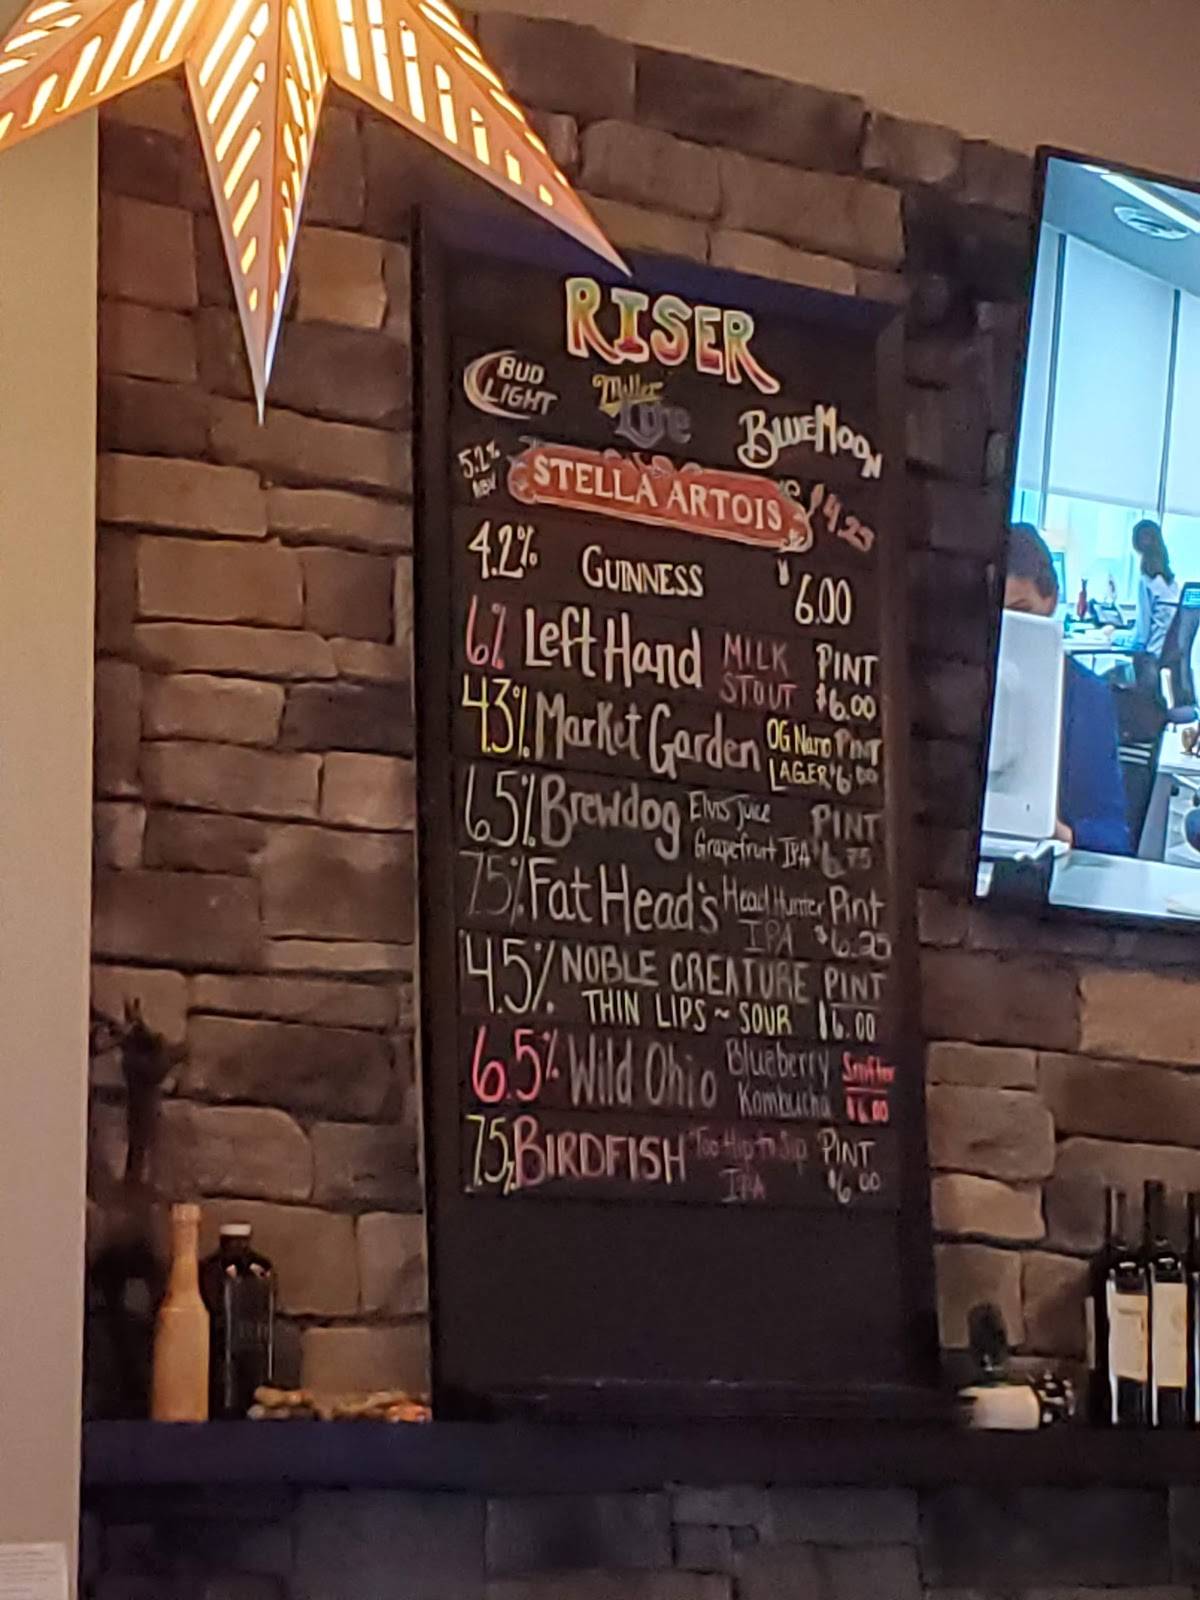 RISER
BUD LIGHT Miller Lite BLUE MOON
5.2% ABV STELLA ARTOIS $4.25
4.2% GUINNESS $6.00
6% Left Hand MILK STOUT PINT $6.00
4.3% Market Garden OG Nano LAGER PINT $6.00
6.5% Brewdog Elvis Juice Grapefruit IPA PINT $6.75
7.5% Fat Head's Head Hunter IPA Pint $6.25
4.5% NOBLE CREATURE PINT
THIN LIPS ~ SOUR $6.00
6.5% Wild Ohio Blueberry Kombucha Snifter $6.00
7.5% BIRDFISH Too Hip to Sip IPA PINT $6.00